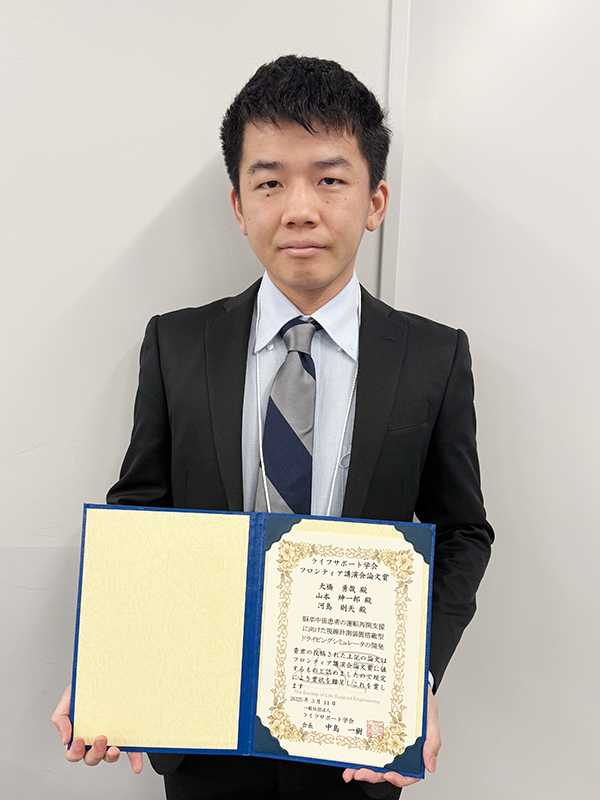 ライフサポート学会
フロンティア講演会論文賞
大橋 勇哉 殿
山本 紳一郎 殿
河島 則天 殿
脳卒中後患者の運転再開支援
に向けた視線計測装置搭載型
ドライビングシミュレータの開発
貴君の投稿された上記の論文は
フロンティア講演会論文賞に値
するものと認めましたので規定
により賞状を贈呈しこれを賞し
ます
The Society of Life Support Engineering
2025年3月11日
一般社団法人
ライフサポート学会
会長 中島 一樹